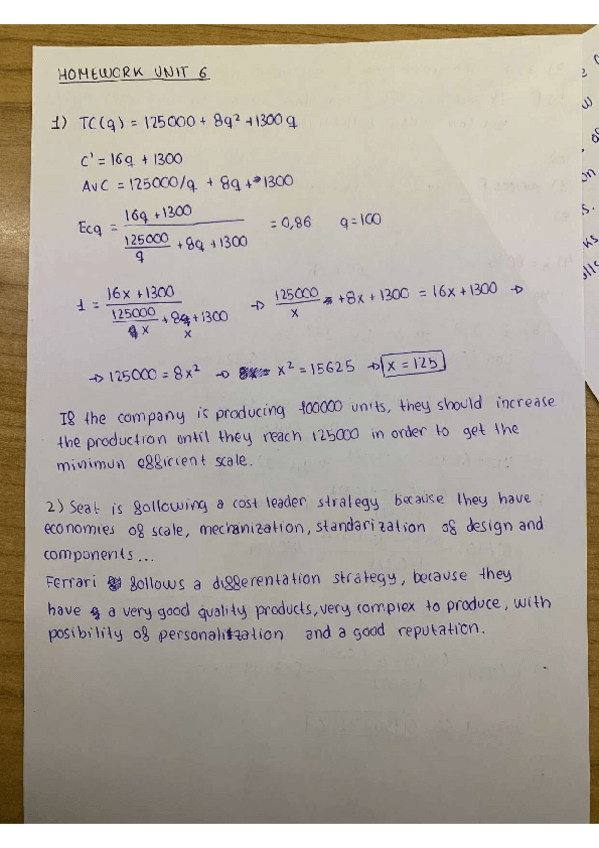 HOMEWORK UNIT 6
1) TC(q) = 125000 + 8q² + 1300q
C' = 16q + 1300
AvC = 125000/q + 8q + 1300
Ecq = (16q + 1300) / (125000/q + 8q + 1300) = 0,86 q = 100
1 = (16x + 1300) / (125000/x + 8x + 1300) → 125000/x + 8x + 1300 = 16x + 1300 →
→ 125000 = 8x² → x² = 15625 → x = 125
If the company is producing 100000 units, they should increase
the production until they reach 125000 in order to get the
minimun efficient scale.
2) Seat is following a cost leader strategy because they have
economies of scale, mechanization, standarization of design and
components...
Ferrari follows a differentation strategy, because they
have a very good quality products, very complex to produce, with
posibility of personalization and a good reputation.